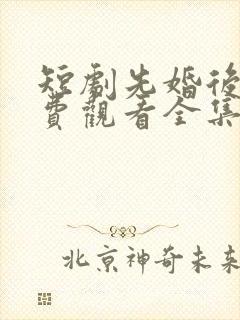 短劇先婚後
費觀看全集
北京神奇未來